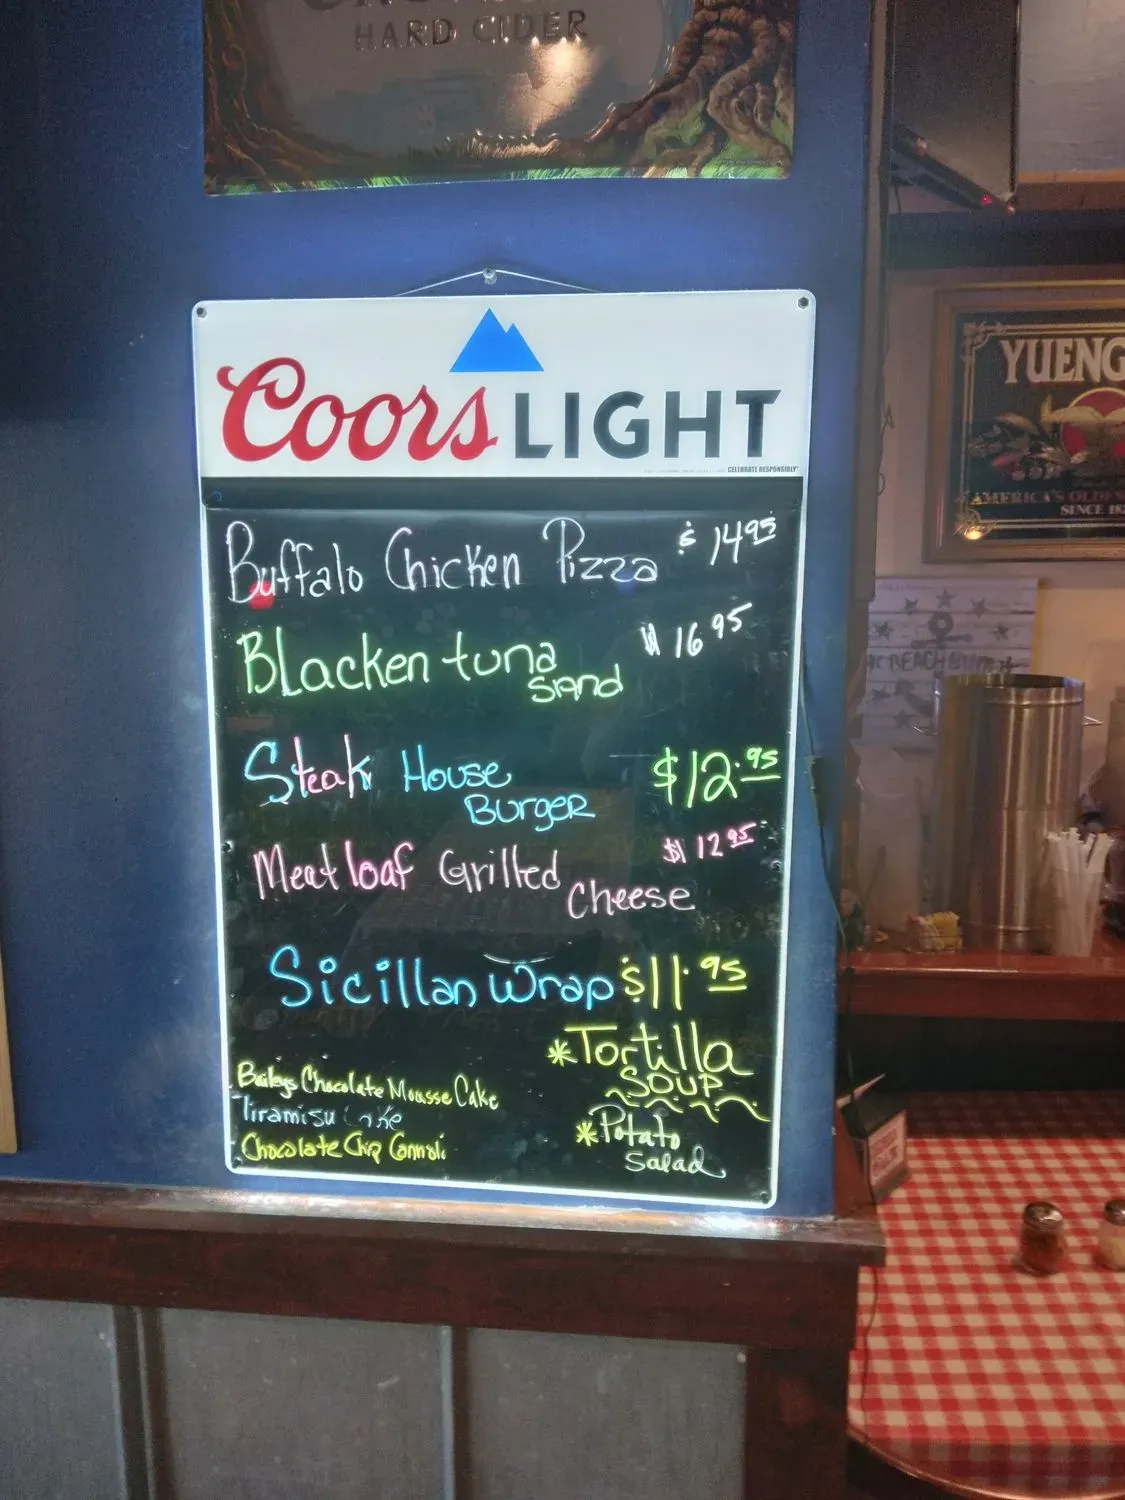 HARD CIDER
Coors LIGHT
CELEBRATE RESPONSIBLY
Buffalo Chicken Pizza $ 14 95
Blacken tuna $ 16 95
sand
Steak House $12.95
Burger
Meat loaf Grilled $ 12 95
Cheese
Sicillan Wrap $11.95
*Tortilla
SOUP
*Potato
Salad
Baileys Chocolate Mousse Cake
Tiramisu Cake
Chocolate Chip Cannoli
YUENG
AMERICA'S OLDES
SINCE 182
BEACH